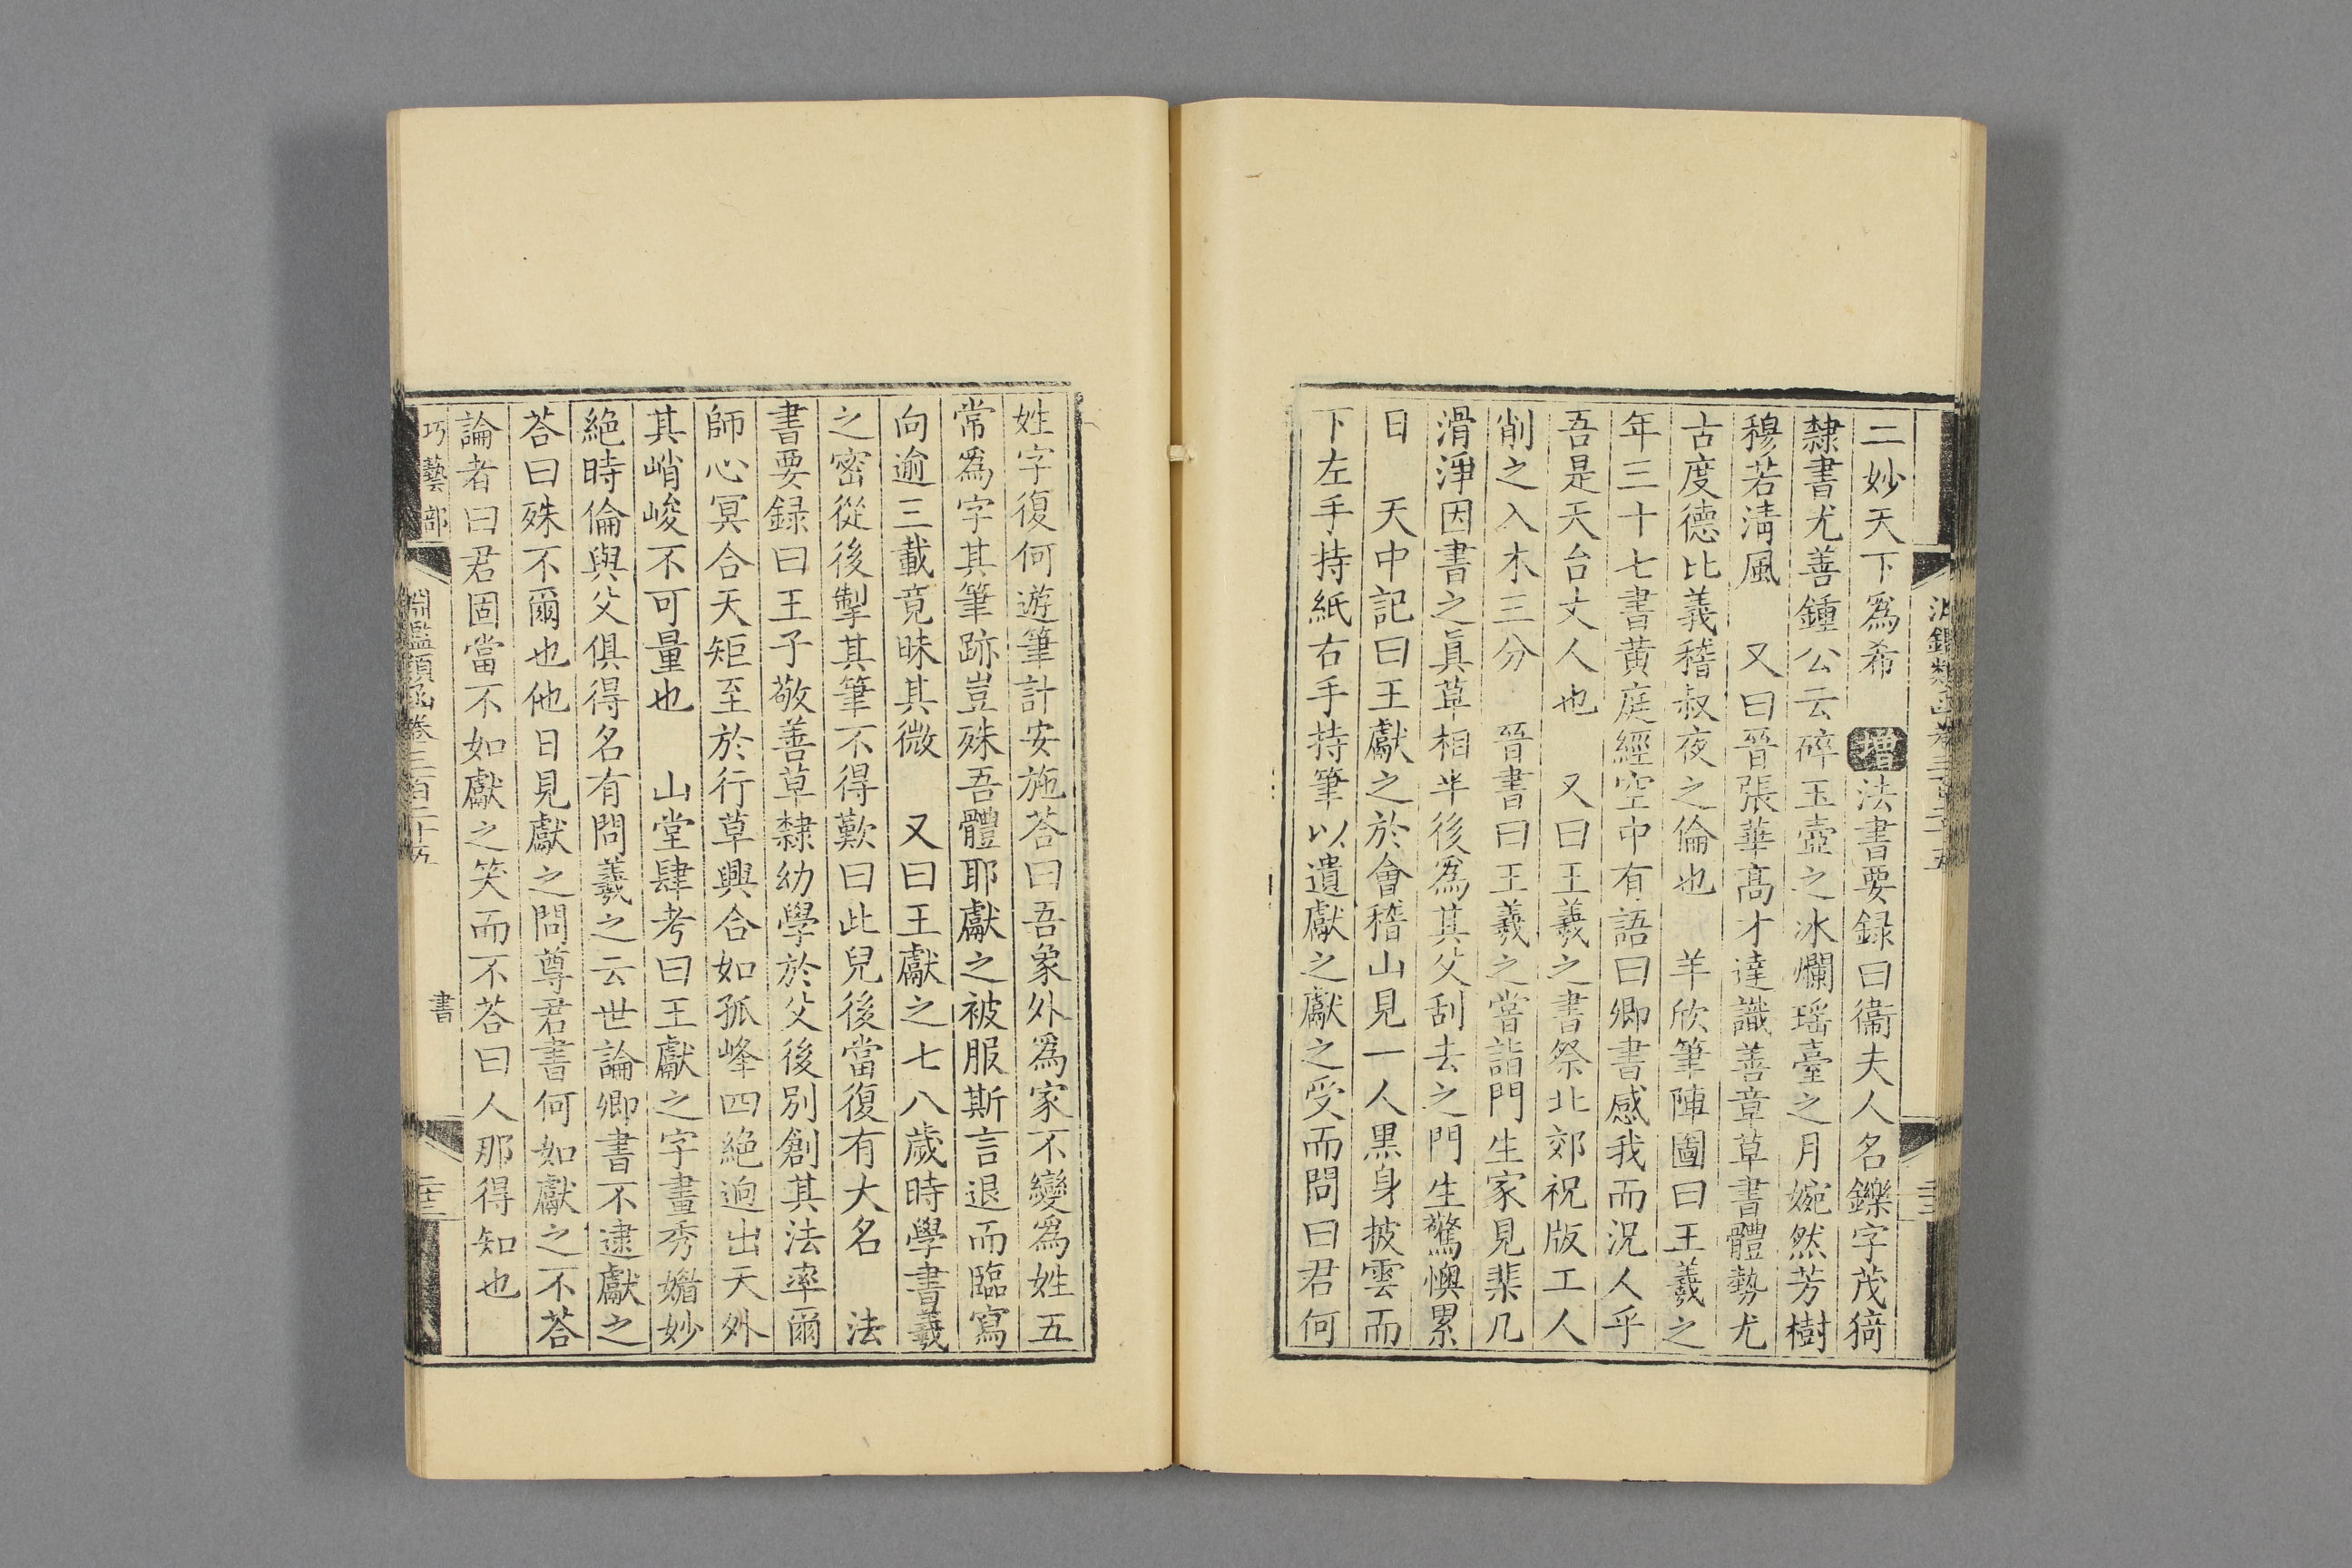 二妙天下爲希　增法書要録曰衞夫人名鑠字茂猗
隸書尤善鍾公云碎玉壺之冰爛瑶臺之月婉然芳樹
穆若淸風　又曰晉張華髙才達識善章草書體勢尤
古度德比義稽叔夜之倫也　羊欣筆陣圖曰王羲之
年三十七書黄庭經空中有語曰卿書感我而況人乎
吾是天台丈人也　又曰王羲之書祭北郊祝版工人
削之入木三分　晉書曰王羲之嘗詣門生家見棐几
滑淨因書之眞草相半後爲其父刮去之門生驚懊累
日　天中記曰王獻之於會稽山見一人黒身披雲而
下左手持紙右手持筆以遺獻之獻之受而問曰君何
姓字復何遊筆計安施荅曰吾象外爲家不變爲姓五
常爲字其筆跡豈殊吾體耶獻之被服斯言退而臨寫
向逾三載竟昧其微　又曰王獻之七八歲時學書羲
之密從後掣其筆不得歎曰此兒後當復有大名　法
書要録曰王子敬善草隸幼學於父後別創其法率爾
師心冥合天矩至於行草興合如孤峰四絶逈出天外
其峭峻不可量也　山堂肆考曰王獻之字畫秀媚妙
絶時倫與父俱得名有問羲之云世論卿書不逮獻之
荅曰殊不爾也他日見獻之問尊君書何如獻之不荅
論者曰君固當不如獻之笑而不荅曰人那得知也
巧藝部　淵鑑類函卷三百二十五　書